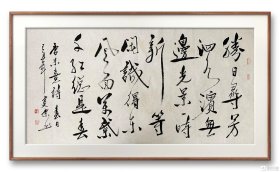 勝日尋芳
泗水濱無
邊光景一時
新等
閑識得东
風面萬紫
千紅總是春
朱熹詩春日